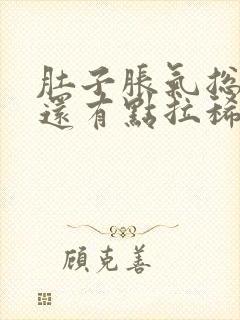 肚子脹氣總
還有點拉稀
顧克善